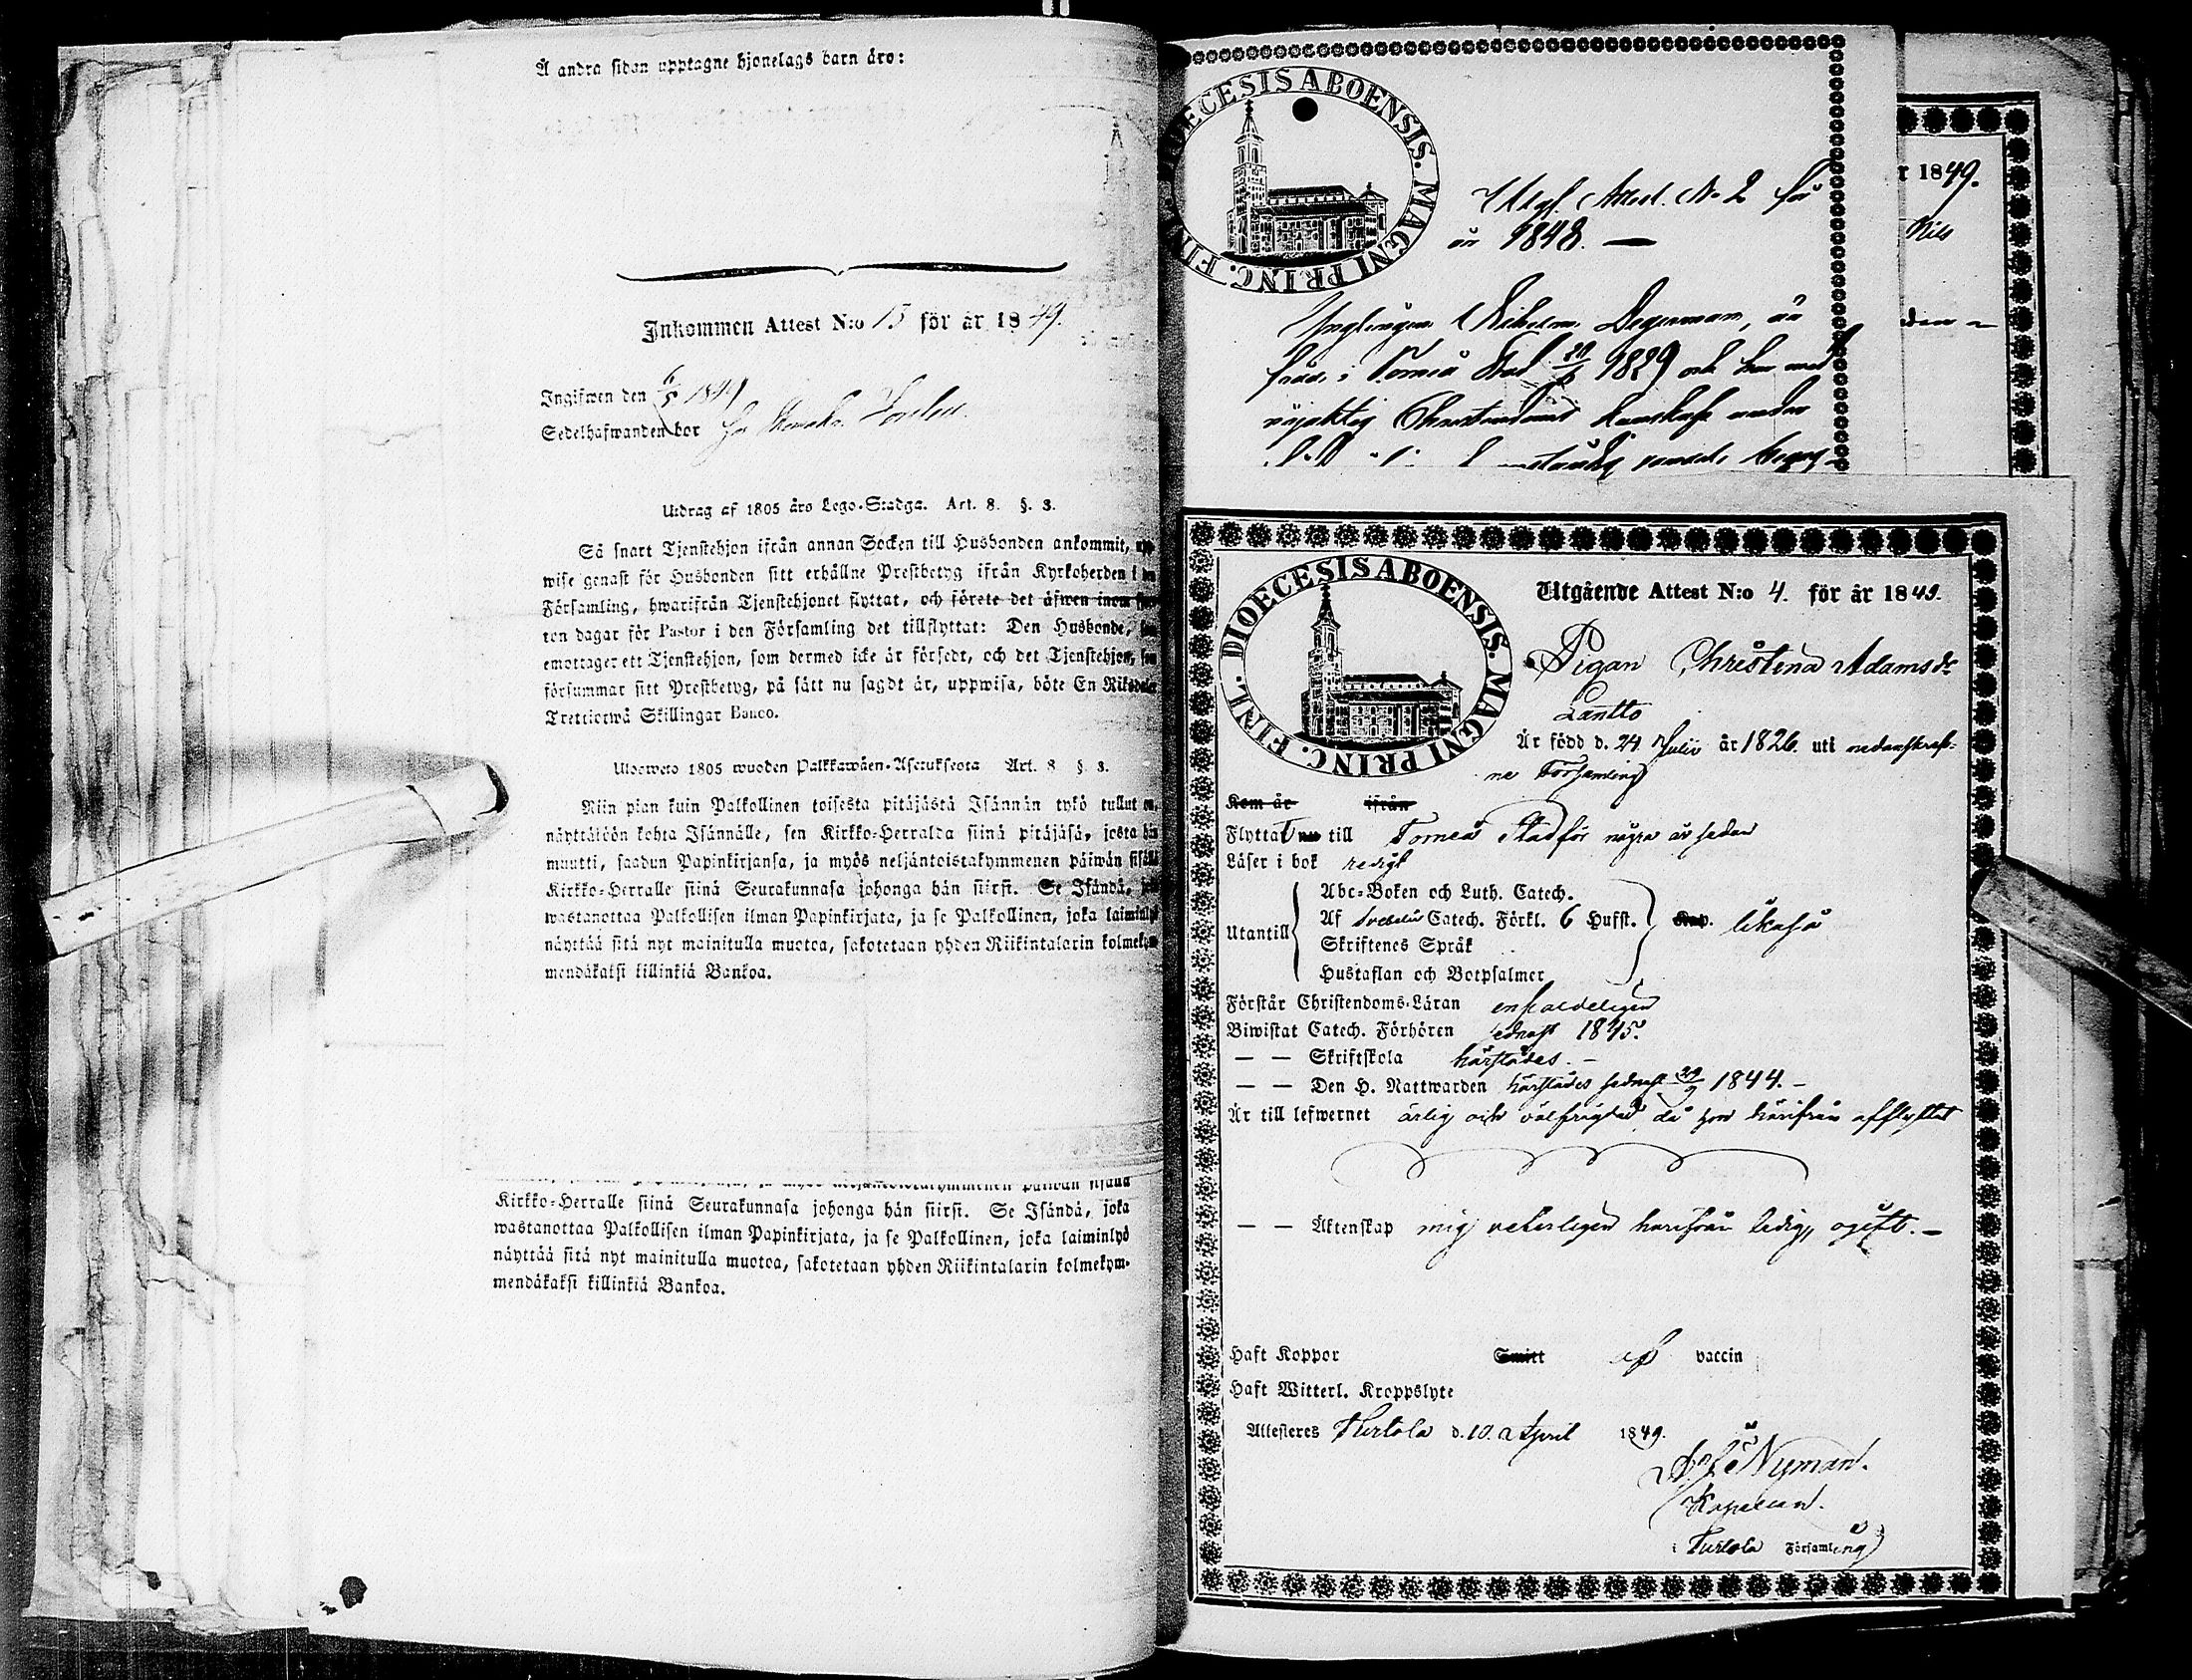 Å andra sidan upptagne hjonelags barn äro:
Inkommen Attest N:o 15 för år 1849.
Ingifwen den 6/5 1849
Sedelhafwanden bor hos
Utdrag af 1805 års Lego-Stadga. Art. 8. §. 3.
Så snart Tjenstehjon ifrån annan Socken till Husbonden ankommit, upp-
wise genast för Husbonden sitt erhållne Prestbetyg ifrån Kyrkoherden i den
Församling, hwarifrån Tjenstehjonet flyttat, och förete det äfwen inom
ton dagar för Pastor i den Församling det tillflyttat: Den Husbonde,
emottager ett Tjenstehjon, som dermed icke är försedt, och det Tjenstehjon, som
försummar sitt Prestbetyg, på sätt nu sagdt är, uppwisa, böte En Riksdaler
Trettiotwå Skillingar Banco.
Ulosweto 1805 wuoden Palkkawäen-Asetuksesta Art. 8 §. 3.
Niin pian kuin Palkollinen toisesta pitäjästä Isännän tykö tullut on,
näyttäköön kohta Isännälle, sen Kirkko-Herralda siinä pitäjäsä, josta hän
muutti, saadun Papinkirjansa, ja myös neljäntoistakymmenen päiwän sisällä
Kirkko-Herralle siinä Seurakunnasa johonga hän siirsi. Se Isändä, joka
wastanottaa Palkollisen ilman Papinkirjata, ja se Palkollinen, joka laiminlyö
näyttää sitä nyt mainitulla muotoa, sakotetaan yhden Riikintalarin kolmekym-
mendäkaksi killinkiä Bankoa.
Kirkko-Herralle siinä Seurakunnasa johonga hän siirsi. Se Isändä, joka
wastanottaa Palkollisen ilman Papinkirjata, ja se Palkollinen, joka laiminlyö
näyttää sitä nyt mainitulla muotoa, sakotetaan yhden Riikintalarin kolmekym-
mendäkaksi killinkiä Bankoa.
DIOECESIS ABOENSIS. MAGNI PRINC. FINL.
Utgf. Attest. No 2 för
år 1848. —
Ynglingen Wilhelm Degerman, är
född i Torneå Stad 1829 och har med
nöjaktig Christendoms kunskap under
r 1849.
Nils
den
DIOECESIS ABOENSIS. MAGNI PRINC. FINL.
Utgående Attest N:o 4. för år 1849.
Pigan Christina Adamsdr
Lantto
Är född d. 24 Julii år 1826. uti nedanskref-
ne Församling
Kom är ifrån
Flyttat nu till Torneå Stad för några år sedan
Läser i bok redigt
Utantill
Abc-Boken och Luth. Catech.
Af Svebelii Catech. Förkl. 6 Hufst.
Skriftenes Språk
Hustaflan och Botpsalmer
Kap. likaså
Förstår Christendoms-Läran enfaldeligen
Biwistat Catech. Förhören sednast 1845.
— — Skriftskola härstädes. —
— — Den H. Nattwarden härstädes sednast 29/9 1844. —
Är till lefwernet ärlig och välfrägdad, då hon härifrån afflyttat
— — Äktenskap mig veterligen härifrån ledig, ogift. —
Haft Koppor Smitt af vaccin
Haft Witterl. Kroppslyte
Attesteres Turtola d. 10. April 1849.
Nyman.
Kapellan.
i Turtola Församling